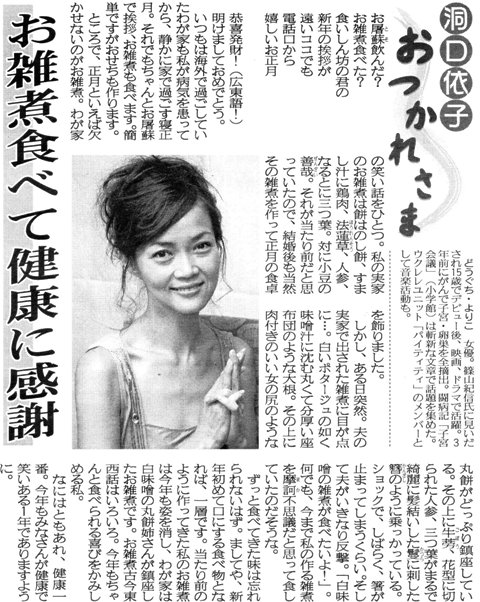 洞口依子
おつかれさま
お雑煮食べて健康に感謝
お屠蘇飲んだ？
お雑煮食べた？
食いしん坊の君の
新年の挨拶が
遠いココでも
電話口から
嬉しいお正月
恭喜発財！（広東語！）
明けましておめでとう。
いつもは海外で過ごしてい
たわが家も私が病気を患って
から、静かに家で過ごす寝正
月。それでもちゃんとお屠蘇
で挨拶、お雑煮も食べます。簡
単ですがおせちも作ります。
ところで、正月といえば欠
かせないのがお雑煮。わが家
の笑い話をひとつ。私の実家
のお雑煮は餅はのし餅、すま
し汁に鶏肉、法蓮草、人参、
なるとに三つ葉。対に小豆の
善哉。それが当たり前だと思
っていたので、結婚後も当然
その雑煮を作って正月の食卓
を飾りました。
しかし、ある日突然。夫の
実家で出された雑煮に目が点
に…。白いポタージュの如く
味噌汁に沈む丸くて分厚い座
布団のような大根。その上に
肉付きのいい女の尻のような
丸餅がどっぷり鎮座してい
る。その上に牛蒡、花型に切
られた人参、三つ葉がまるで
綺麗に髪結いした鬘に刺した
簪のように乗っかっている。
ショックで、しばらく、箸が
止まってしまうくらい。そし
て夫がいきなり反撃。「白味
噌の雑煮が食べたいよ！」。
何でも、今まで私の作る雑煮
を摩訶不思議だと思って食し
ていたのだそうな。
ずっと食べてきた味は忘れ
られないはず。ましてや、新
年初めて口にする食べ物とな
れば、一層です。当たり前の
ように作ってきた私のお雑煮
は今年も姿を消し、わが家は
白味噌の丸餅姉さんが鎮座し
たお雑煮です。お雑煮古今東
西話はいろいろ。今年もちゃ
んと食べられる喜びをかみし
める私。
なにはともあれ、健康一
番。今年もみなさんが健康で
笑いある1年でありますよう
に。
どうぐち・よりこ　女優。篠山紀信氏に見いだ
され15歳でデビュー後、映画、ドラマで活躍。3
年前にがんで子宮・卵巣を全摘出。闘病記「子宮
会議」（小学館）は斬新な文章で話題を集めた。
ウクレレユニット「パイティティ」のメンバーと
して音楽活動も。